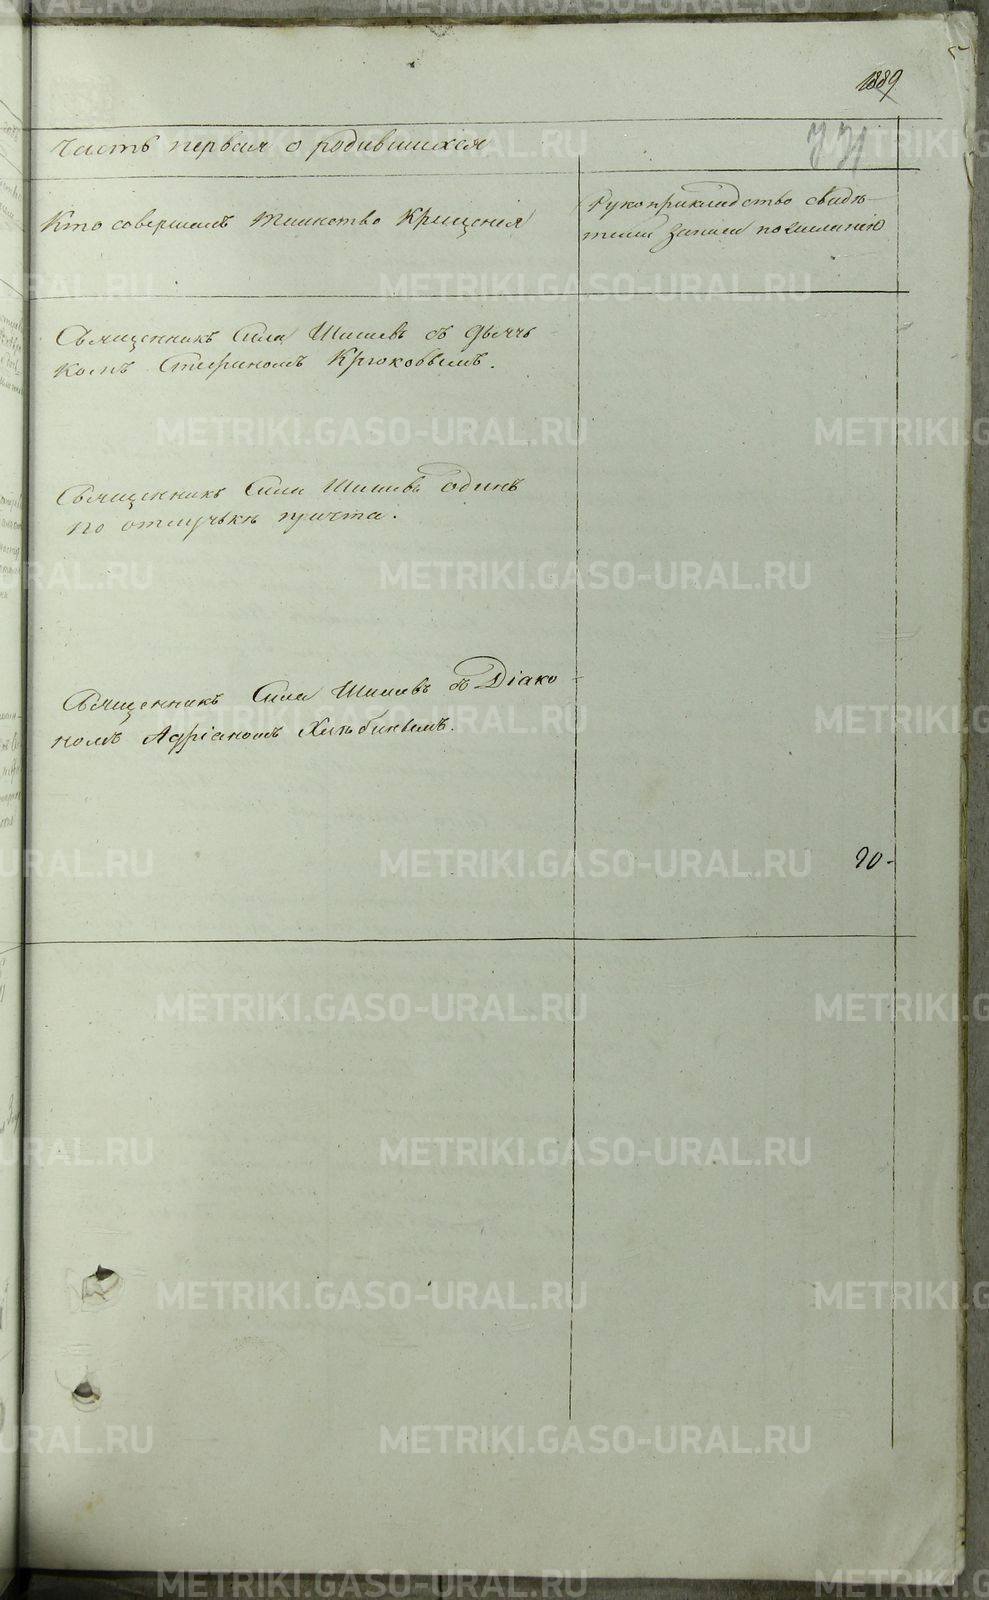 1889
Часть первая о родившихся
Кто совершалъ таинство крещенія
Рукоприкладство свидѣ-
телей записи по желанію
Священникъ Сила Шишевъ съ дьячь
комъ Стефаномъ Крюковымъ.
Священникъ Сила Шишевъ одинъ
по отлучькѣ причта.
Священникъ Сила Шишевъ съ Діако-
номъ Адріаномъ
90-
METRIKI.GASO-URAL.RU